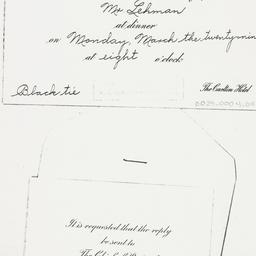 Mr Lehman
at dinner
on Monday, March the twentynin
at eight o'clock
Black tie
The Carlton Hotel
It is requested that the reply
be sent to